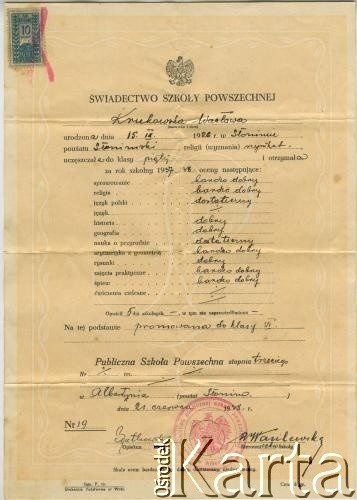 10
ŚWIADECTWO SZKOŁY POWSZECHNEJ
Wacława
urodzona dnia 15. IX. 1926 r. w Słonimie
powiatu Słonimski religii (wyznania)
uczęszczała do klasy piątej i otrzymała
za rok szkolny 1937/38 oceny następujące:
sprawowanie bardzo dobry
religia bardzo dobry
język polski dostateczny
język
historia dobry
geografia dobry
nauka o przyrodzie dostateczny
arytmetyka z geometrią bardzo dobry
rysunki dobry
zajęcia praktyczne bardzo dobry
śpiew bardzo dobry
ćwiczenia cielesne
Opuścił dni szkolnych w tym nie usprawiedliwiono
Na tej podstawie promowana do klasy VI
Publiczna Szkoła Powszechna stopnia trzeciego
Nr 1 m.
w Albertynie (powiat Słonim)
dnia 21 czerwca 1938 r.
Nr 19
Opiekun
ośrodek Karta